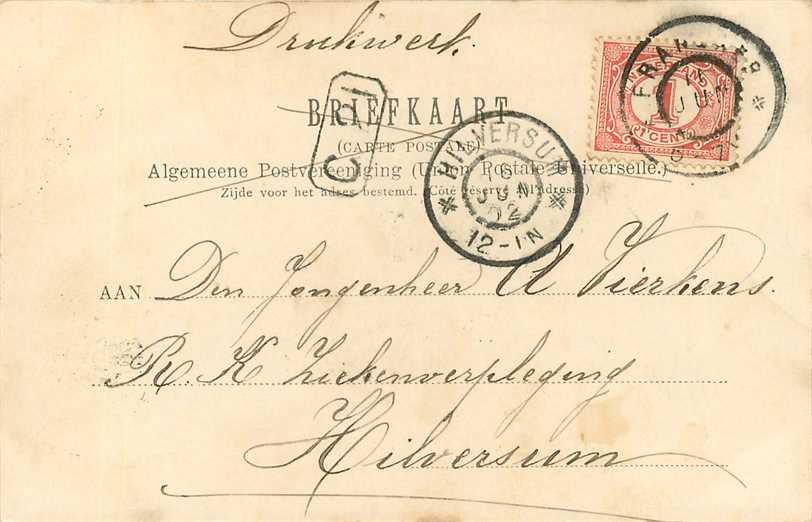 Drukwerk.
BRIEFKAART
(CARTE POSTALE)
Algemeene Postvereeniging (Union Postale Universelle.)
Zijde voor het adres bestemd. (Côté réservé à l'adresse)
HILVERSUM
6
JUN
02
12-1N
FRANEKER
JUN
NEDERLAND
1
CENT
AAN Den Jongenheer A Vierkens.
R. K Ziekenverpleging
Hilversum